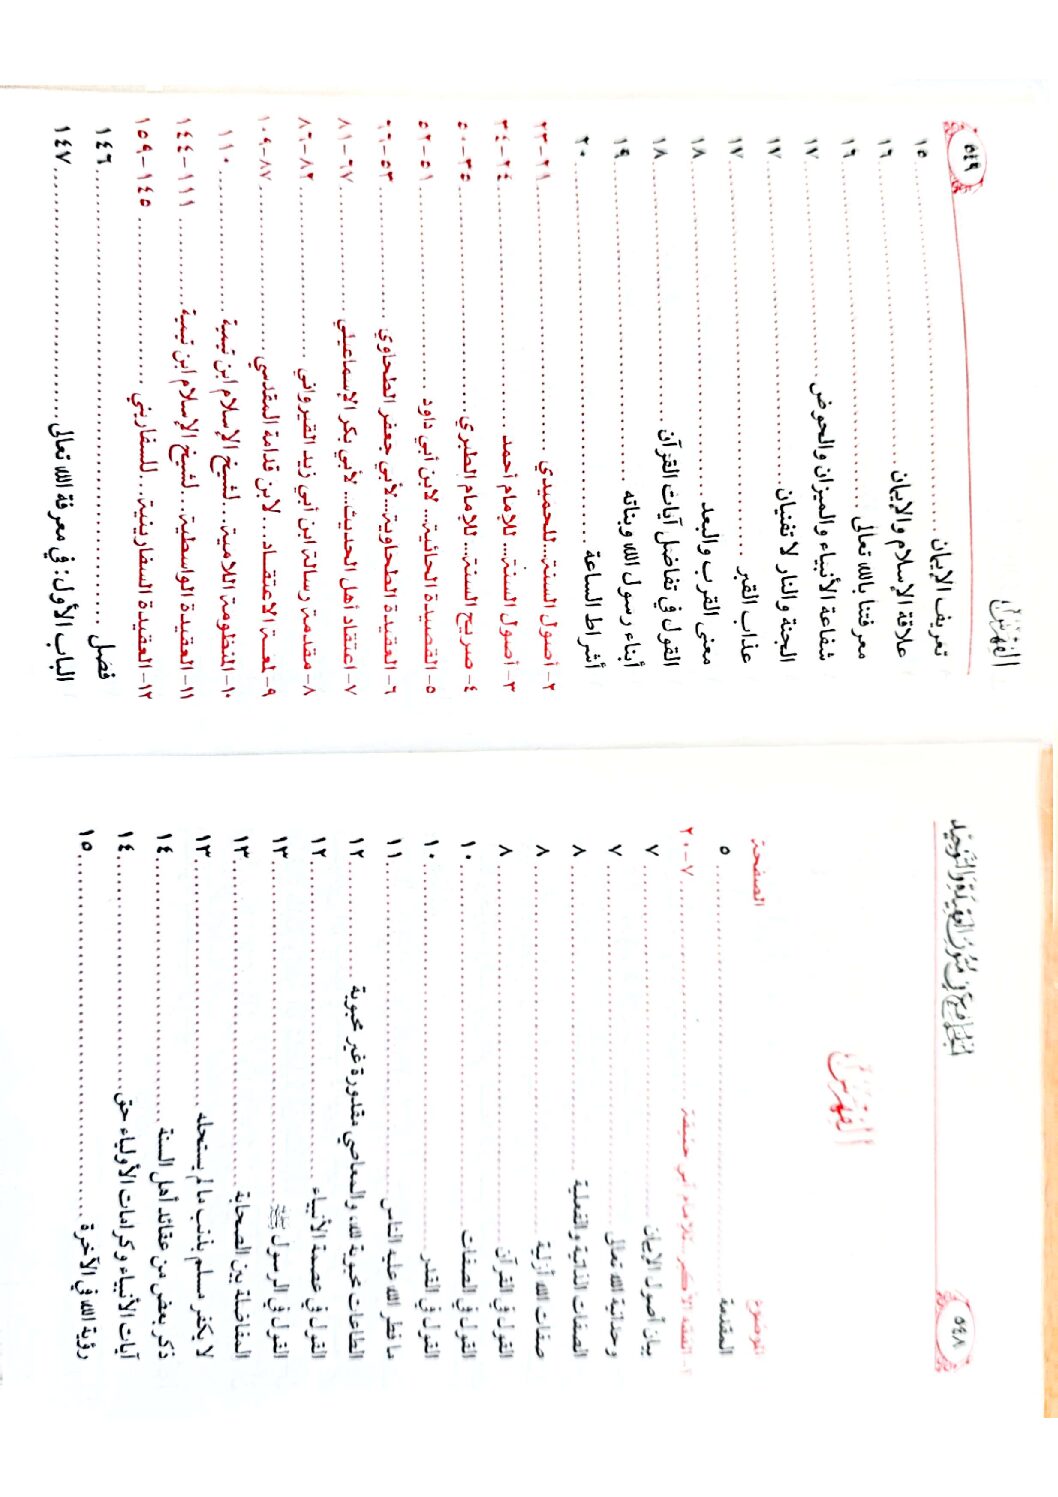 ٥٤٨
الجامع في متون العقيدة والتوحيد
الفهرس
الموضوع الصفحة
المقدمة ........ ٥
١- الفقه الأكبر.. للإمام أبي حنيفة ........ ٧-٢٠
بيان أصول الإيمان ........ ٧
وحدانية الله تعالى ........ ٧
الصفات الذاتية والفعلية ........ ٨
صفات الله أزلية ........ ٨
القول في القرآن ........ ٨
القول في الصفات ........ ١٠
القول في القدر ........ ١٠
ما فطر الله عليه الناس ........ ١١
الطاعات محبوبة لله، والمعاصي مقدورة غير محبوبة ........ ١٢
القول في عصمة الأنبياء ........ ١٢
القول في الرسول ﷺ ........ ١٣
المفاضلة بين الصحابة ........ ١٣
لا يكفر مسلم بذنب ما لم يستحله ........ ١٣
ذكر بعض من عقائد أهل السنة ........ ١٤
آيات الأنبياء وكرامات الأولياء حق ........ ١٤
رؤية الله في الآخرة ........ ١٥
الفهرس
٥٤٩
تعريف الإيمان ........ ١٥
علاقة الإسلام والإيمان ........ ١٦
معرفتنا بالله تعالى ........ ١٦
شفاعة الأنبياء والميزان والحوض ........ ١٧
الجنة والنار لا تفنيان ........ ١٧
عذاب القبر ........ ١٧
معنى القرب والبعد ........ ١٨
القول في تفاضل آيات القرآن ........ ١٨
أبناء رسول الله وبناته ........ ١٩
أشراط الساعة ........ ٢٠
٢- أصول السنة... للحميدي ........ ٢١-٢٣
٣- أصول السنة... للإمام أحمد ........ ٢٤-٣٤
٤- صريح السنة... للإمام الطبري ........ ٣٥-٥٠
٥- القصيدة الحائية... لابن أبي داود ........ ٥١-٥٢
٦- العقيدة الطحاوية... لأبي جعفر الطحاوي ........ ٥٣-٦٦
٧- اعتقاد أهل الحديث... لأبي بكر الإسماعيلي ........ ٦٧-٨١
٨- مقدمة رسالة ابن أبي زيد القيرواني ........ ٨٢-٨٦
٩- لمعة الاعتقاد... لابن قدامة المقدسي ........ ٨٧-١٠٩
١٠- المنظومة اللامية... لشيخ الإسلام ابن تيمية ........ ١١٠
١١- العقيدة الواسطية... لشيخ الإسلام ابن تيمية ........ ١١١-١٤٤
١٢- العقيدة السفارينية... للسفاريني ........ ١٤٥-١٥٩
فصل ........ ١٤٦
الباب الأول: في معرفة الله تعالى ........ ١٤٧